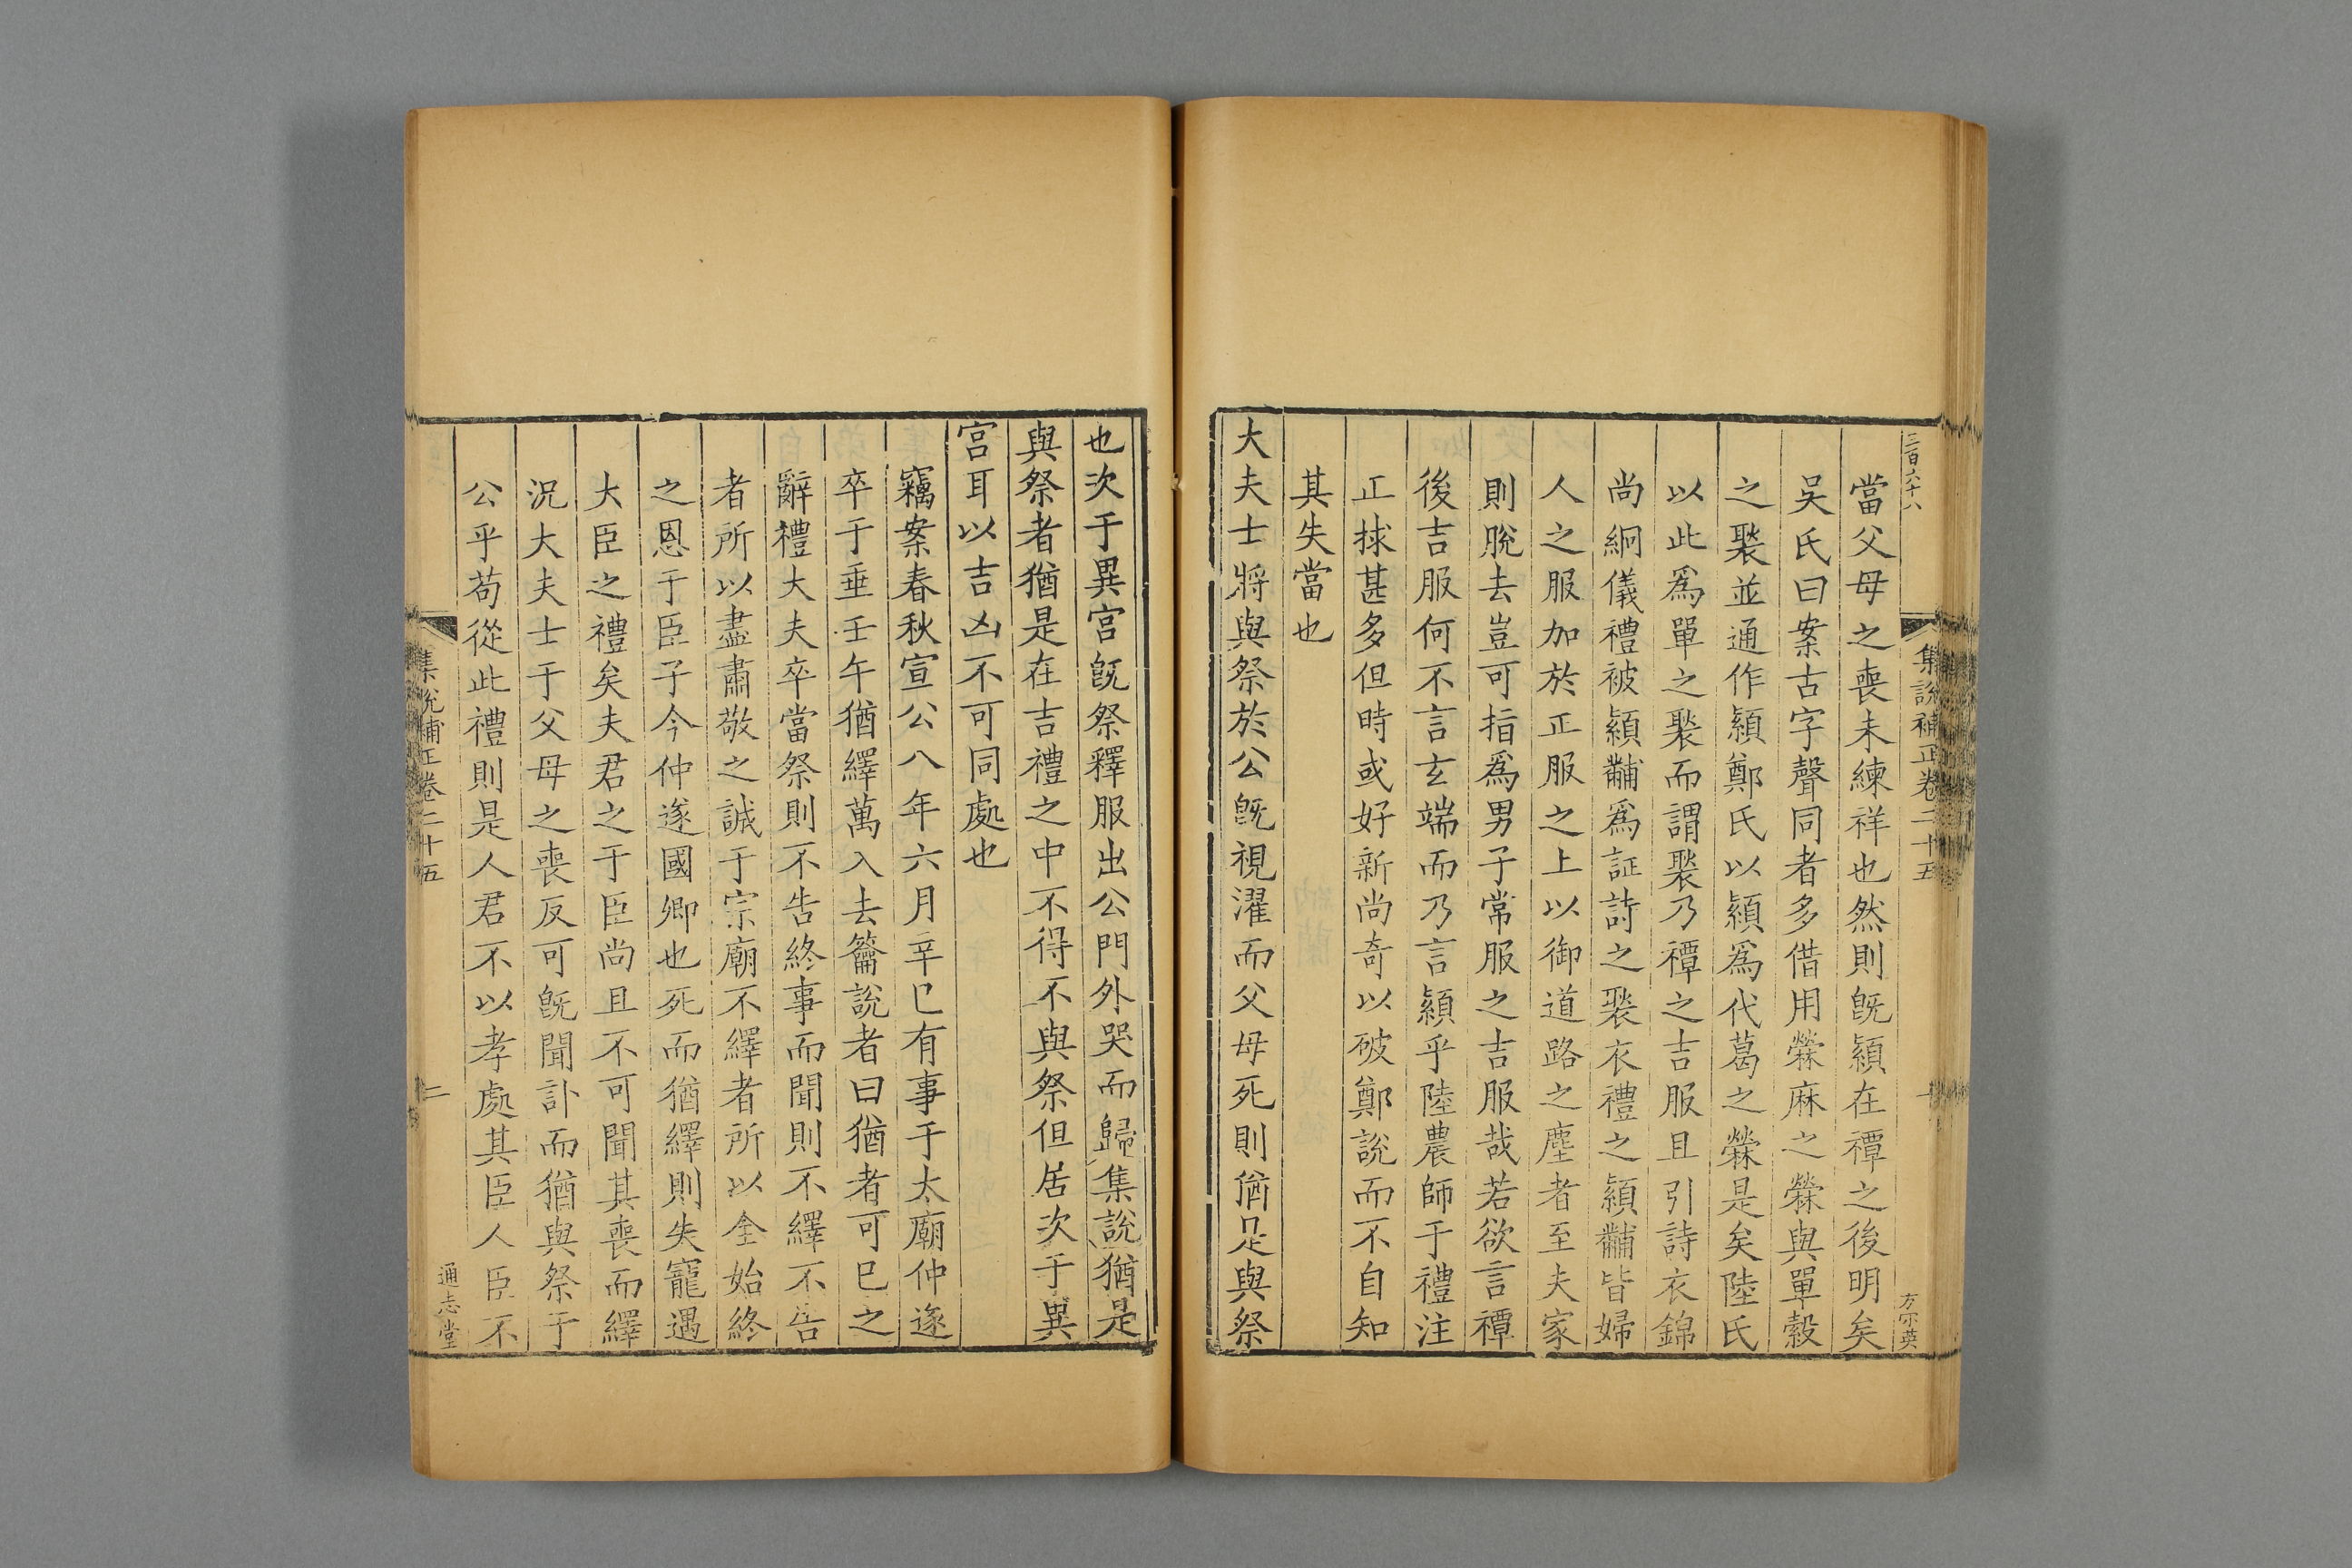 三百六十八
集說補正卷二十五
一
當父母之喪未練祥也然則旣顈在禫之後明矣
吳氏曰案古字聲同者多借用檾麻之檾與單縠
之褧並通作顈鄭氏以顈爲代葛之檾是矣陸氏
以此爲單之褧而謂褧乃禫之吉服且引詩衣錦
尚絅儀禮被顈黼爲証詩之褧衣禮之顈黼皆婦
人之服加於正服之上以御道路之塵者至夫家
則脫去豈可指爲男子常服之吉服哉若欲言禫
後吉服何不言玄端而乃言顈乎陸農師于禮注
正捄甚多但時或好新尚奇以破鄭說而不自知
其失當也
大夫士將與祭於公旣視濯而父母死則猶是與祭
也次于異宮旣祭釋服出公門外哭而歸集說猶是
與祭者猶是在吉禮之中不得不與祭但居次于異
宮耳以吉凶不可同處也
竊案春秋宣公八年六月辛巳有事于太廟仲遂
卒于垂壬午猶繹萬入去籥說者曰猶者可已之
辭禮大夫卒當祭則不告終事而聞則不繹不告
者所以盡肅敬之誠于宗廟不繹者所以全始終
之恩于臣子今仲遂國卿也死而猶繹則失寵遇
大臣之禮矣夫君之于臣尚且不可聞其喪而繹
況大夫士于父母之喪反可旣聞訃而猶與祭于
公乎苟從此禮則是人君不以孝處其臣人臣不
集說補正卷二十五
二
通志堂